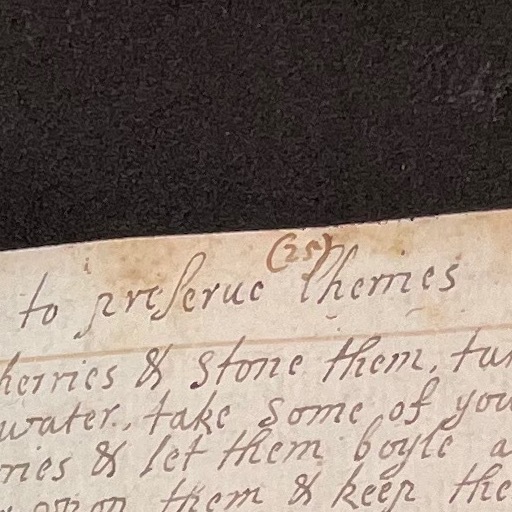 (25)
to preserue Cherries
herries & stone them, tur
water, take some of you
ries & let them boyle a
upon them & keep the